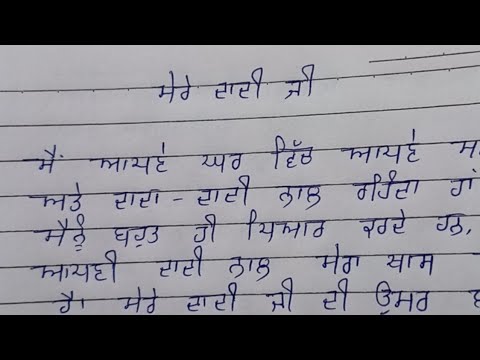 ਮੇਰੇ ਦਾਦੀ ਜੀ
ਮੈਂ ਆਪਣੇ ਘਰ ਵਿੱਚ ਆਪਣੇ
ਅਤੇ ਦਾਦਾ - ਦਾਦੀ ਨਾਲ ਰਹਿੰਦਾ ਹਾਂ
ਮੈਨੂੰ ਬਹੁਤ ਹੀ ਪਿਆਰ ਕਰਦੇ ਹਨ,
ਆਪਣੀ ਦਾਦੀ ਨਾਲ ਮੇਰਾ ਖਾਸ
ਹੈ। ਮੇਰੇ ਦਾਦੀ ਜੀ ਦੀ ਉਮਰ